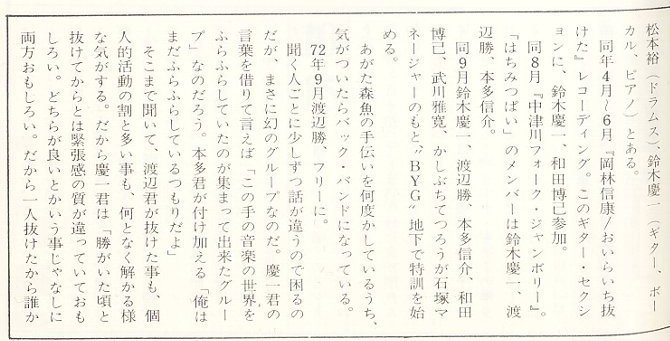 松本裕（ドラムス）、鈴木慶一（ギター、ボー
カル、ピアノ）とある。
同年4月～6月『岡林信康/おいらいち抜
けた』レコーディング。このギター・セクシ
ョンに、鈴木慶一、和田博己参加。
同8月『中津川フォーク・ジャンボリー』。
「はちみつぱい」のメンバーは鈴木慶一、渡
辺勝、本多信介。
同9月鈴木慶一、渡辺勝、本多信介、和田
博己、武川雅寛、かしぶちてつろうが石塚マ
ネージャーのもと〝BYG〟地下で特訓を始
める。
あがた森魚の手伝いを何度かしているうち、
気がついたらバック・バンドになっている。
72年9月渡辺勝、フリーに。
聞く人ごとに少しずつ話が違うので困るの
だが、まさに幻のグループなのだ。慶一君の
言葉を借りて言えば「この手の音楽の世界を
ふらふらしていたのが集まって出来たグルー
プ」なのだろう。本多君が付け加える「俺は
まだふらふらしているつもりだよ」
そこまで聞いて、渡辺君が抜けた事も、個
人的活動の割と多い事も、何となく解かる様
な気がする。だから慶一君は「勝がいた頃と
抜けてからとは緊張感の質が違っていておも
しろい。どちらが良いとかいう事じゃなしに
両方おもしろい。だから一人抜けたから誰か